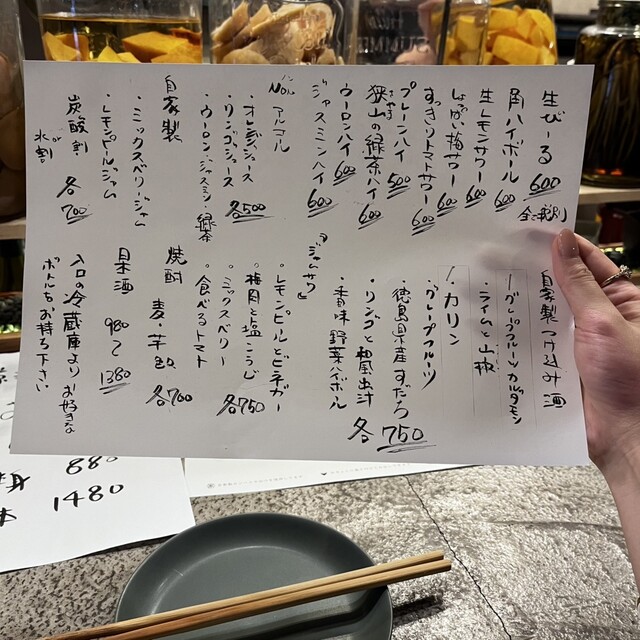 生びーる 600
全て税別
角ハイボール 600
生レモンサワー 600
しょっぱい梅サワー 600
すっきりトマトサワー 600
プレーンハイ 500
狭山の緑茶ハイ 600
さやま
ウーロンハイ 600
ジャスミンハイ 600
ノンアルコール
・オレンジジュース
・リンゴジュース
・ウーロン・ジャスミン・緑茶
各500
自家製
・ミックスベリージャム
・レモンピールジャム
炭酸割
or
水割
各700
自家製つけ込み酒
・グレープフルーツカルダモン
・ライムと山椒
・カリン
・グレープフルーツ
・徳島県産すだち
・リンゴと和風出汁
・香味野菜ハイボール
各750
『ジャムサワー』
・レモンピールとビネガー
・梅肉と塩こうじ
・ミックスベリー
・食べるトマト
各750
焼酎
麦・芋
各700
日本酒
980〜1380
入口の冷蔵庫よりお好きな
ボトルをお持ち下さい
880
1480